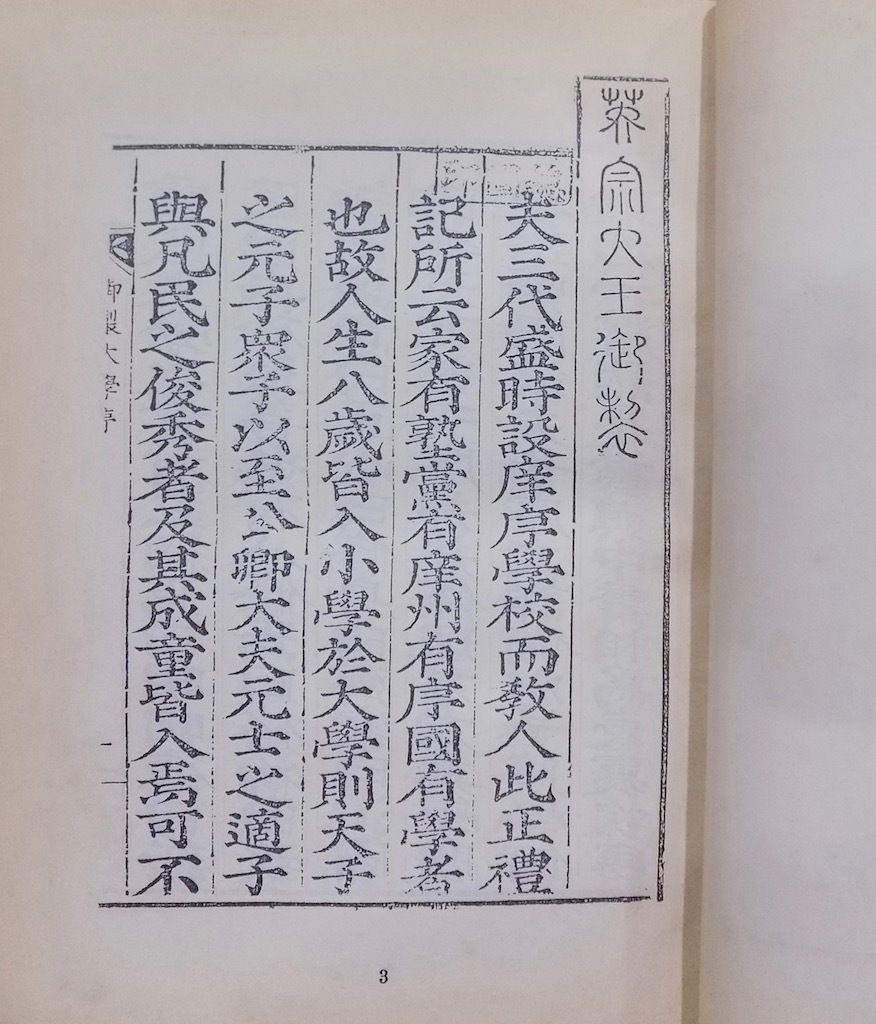 英宗大王御製
夫三代盛時設庠序學校而敎人此正禮
記所云家有塾黨有庠州有序國有學者
也故人生八歲皆入小學於大學則天子
之元子衆子以至公卿大夫元士之適子
與凡民之俊秀者及其成童皆入焉可不
御製大學序 一
3